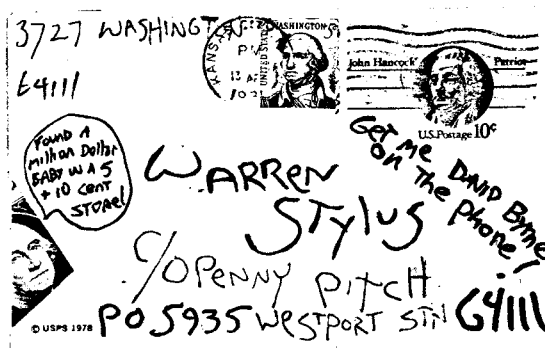 3727 WASHINGTON
64111
KANSAS
PM
WASHINGTON 5c
UNITED STATES
John Hancock Patriot
U.S. Postage 10¢
FOUND A
Million Dollar
BABY IN A 5
+ 10 CENT
STORE!
GET ME DAVID BYRNE
ON THE PHONE!
WARREN
STYLUS
C/O PENNY PITCH
PO 5935 WESTPORT STN 64111
© USPS 1978